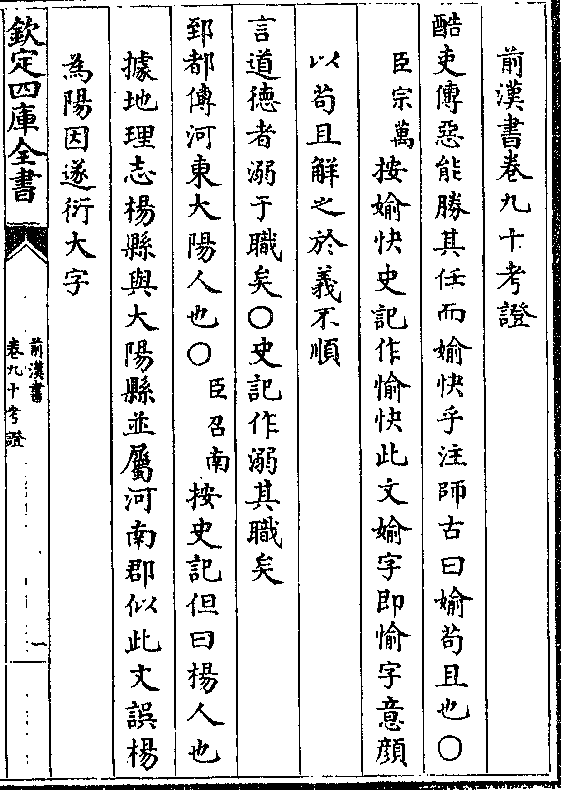 前漢書卷九十考證
酷吏傳惡能勝其任而媮快乎注師古曰媮苟且也〇
臣宗萬按媮快史記作愉快此文媮字即愉字意顔
以苟且解之於義不順
言道德者溺于職矣〇史記作溺其職矣
郅都傳河東大陽人也〇臣召南按史記但曰楊人也
據地理志楊縣與大陽縣並屬河南郡似此文誤楊
為陽因遂衍大字
欽定四庫全書
前漢書
卷九十考證
一